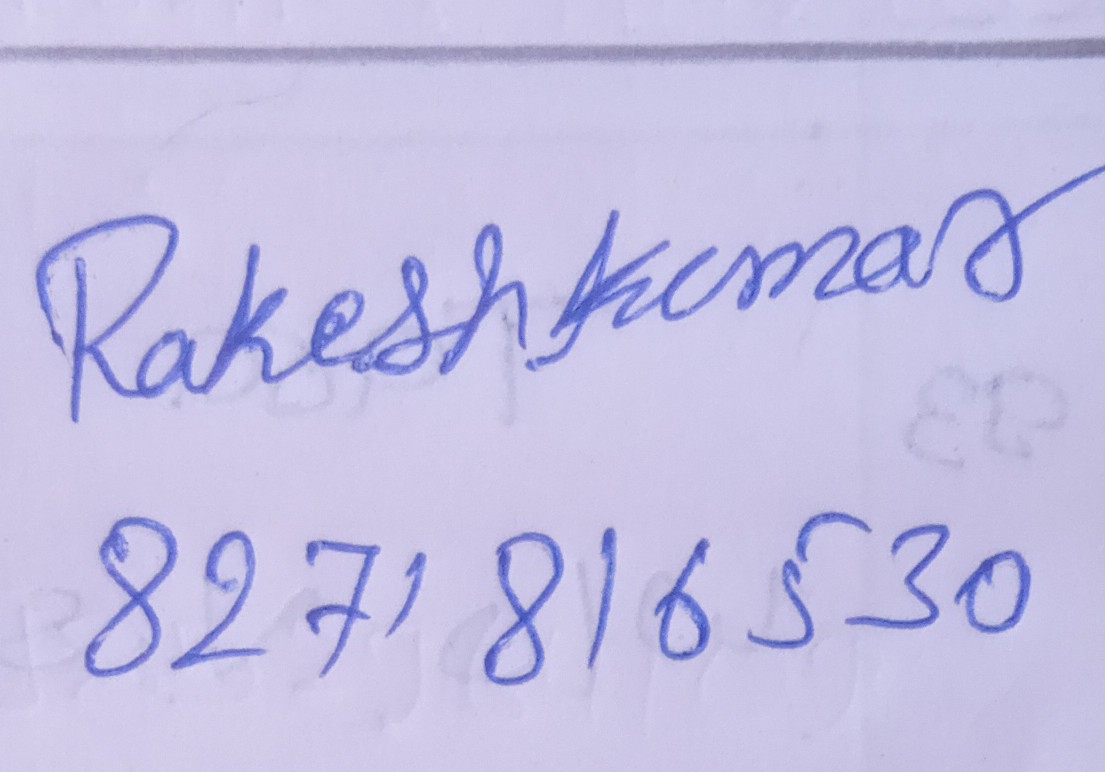 Rakesh kumar
8271816530